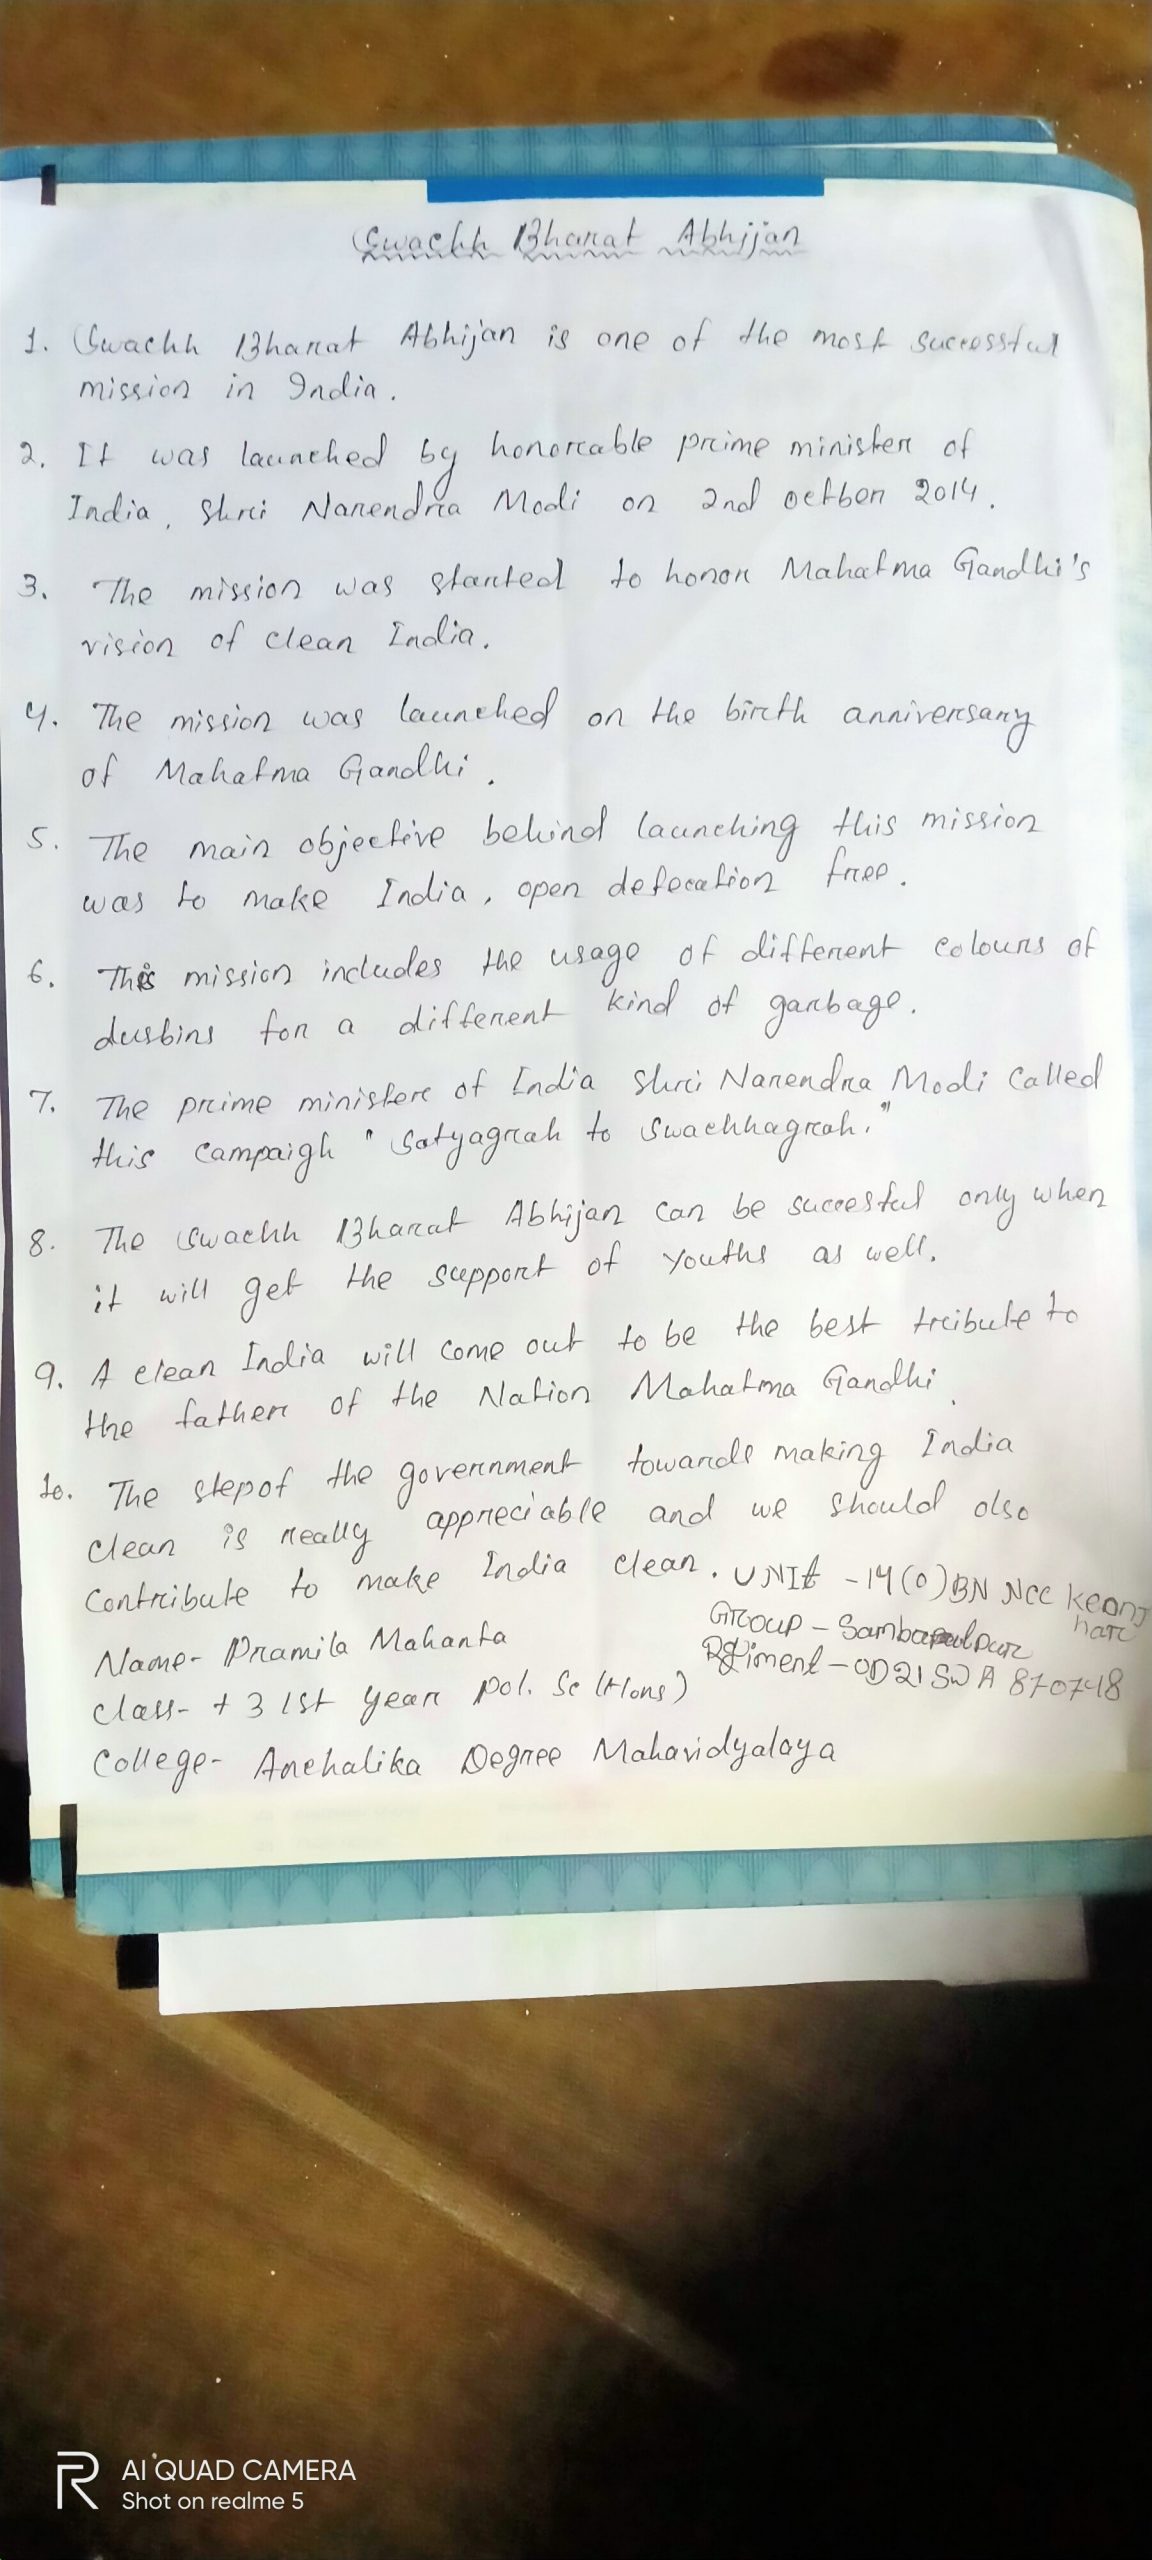 Swachh Bharat Abhijan
1. Swachh Bharat Abhijan is one of the most successful
mission in India.
2. It was launched by honorable prime minister of
India, Shri Narendra Modi on 2nd octber 2014.
3. The mission was started to honor Mahatma Gandhi's
vision of clean India.
4. The mission was launched on the birth anniversary
of Mahatma Gandhi.
5. The main objective behind launching this mission
was to make India, open defecation free.
6. This mission includes the usage of different colours of
dusbins for a different kind of garbage.
7. The prime minister of India Shri Narendra Modi Called
this campaigh "Satyagrah to Swachhagrah."
8. The Swachh Bharat Abhijan can be succesful only when
it will get the support of youths as well.
9. A clean India will come out to be the best tribute to
the father of the Nation Mahatma Gandhi.
10. The step of the government towards making India
clean is really appreciable and we should also
contribute to make India clean.
UNIt - 14(O)BN NCC Keonjhar
Group - Sambapulpur
Rgiment - OD21SWA870748
Name- Pramila Mahanta
class- +3 1st year pol. Sc (Hons)
College- Anchalika Degree Mahavidyalaya
AI QUAD CAMERA
Shot on realme 5